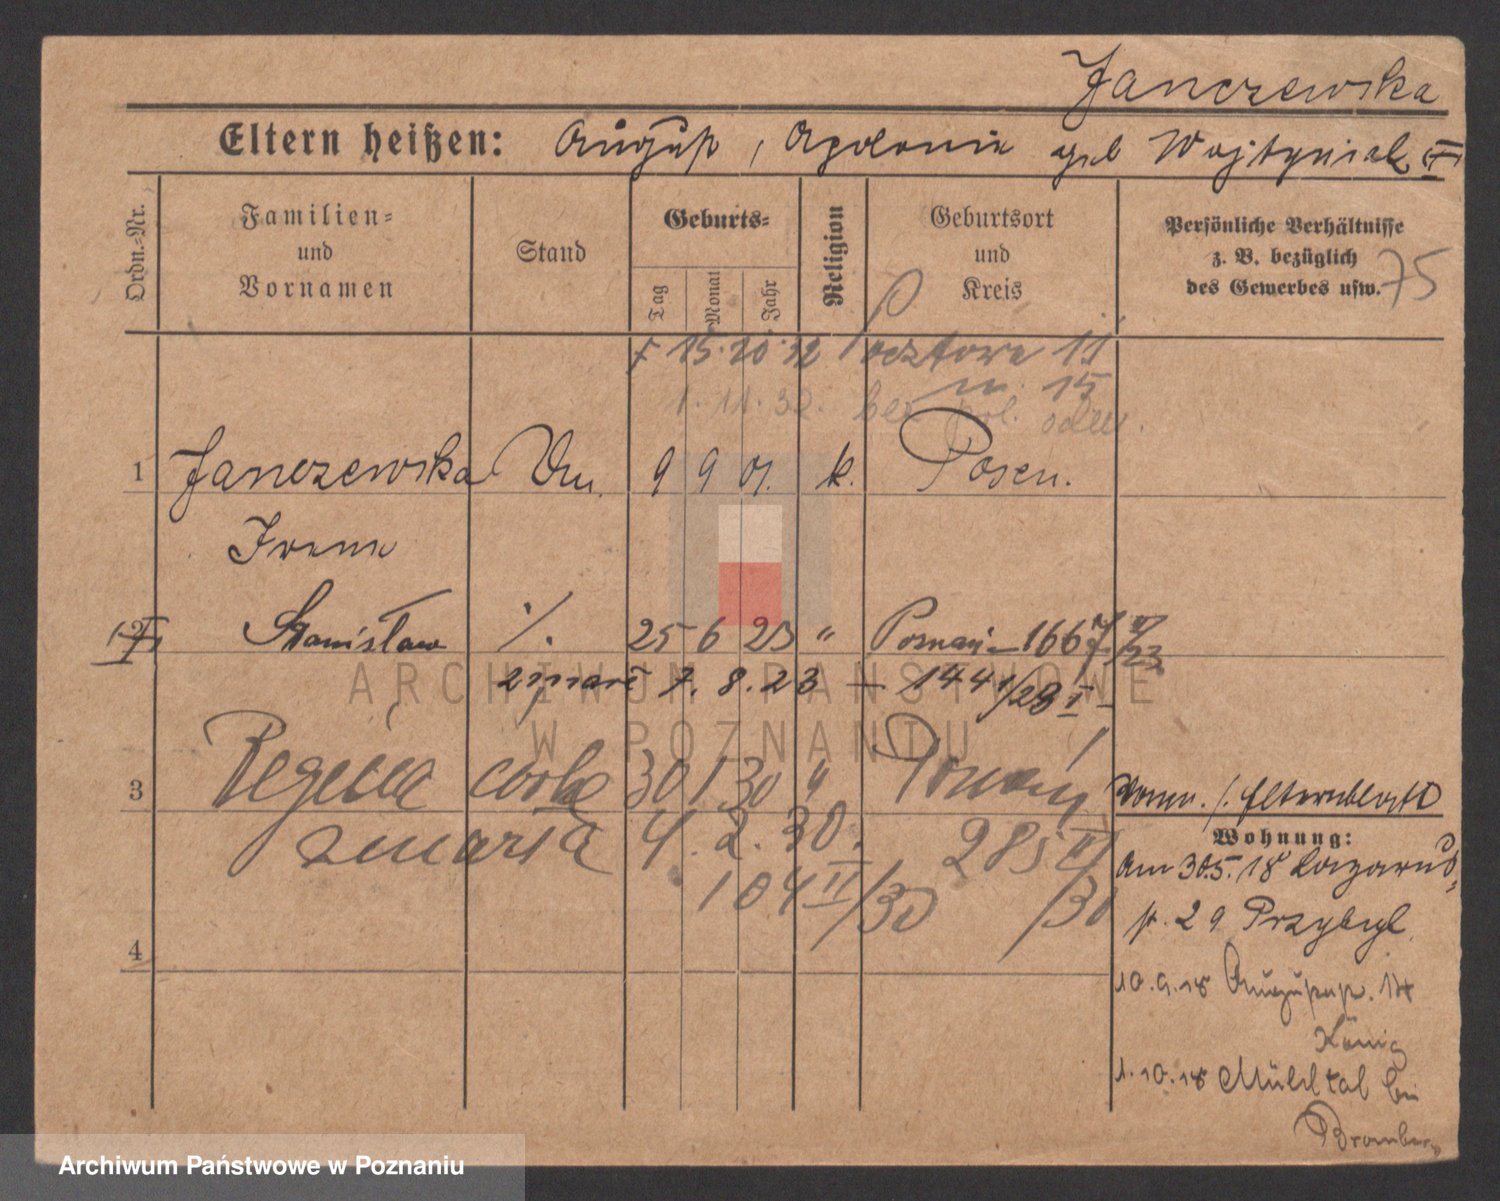 Janczewska
Eltern heißen: August, Apolonia geb Wojtyniak
Ordn.-Nr.
Familien-
und
Vornamen
Stand
Geburts-
Tag
Monat
Jahr
Religion
Geburtsort
und
Kreis
Persönliche Verhältnisse
z. B. bezüglich
des Gewerbes usw.
75
15. 10 32 Pocztowa 11
m. 15
1. 11. 32.
1 Janczewska 9 9 01. k. Posen.
Irena
2 Stanisław 25 6 23 " Poznań 1667
zmarł 7. 8. 23 — 1441/23 I
3 córka 30 1 30 " Poznań
zmarła 4. 2. 30. 285 II/30
104 II/30
4
Vorm. s. Elternblatt
Wohnung:
Am 30.5.18 Lazarus
st. 29 Przybyl.
10.9.18 14
König
1.10.18 Mühltal bei
Bromberg
ARCHIWUM PAŃSTWOWE
W POZNANIU
Archiwum Państwowe w Poznaniu